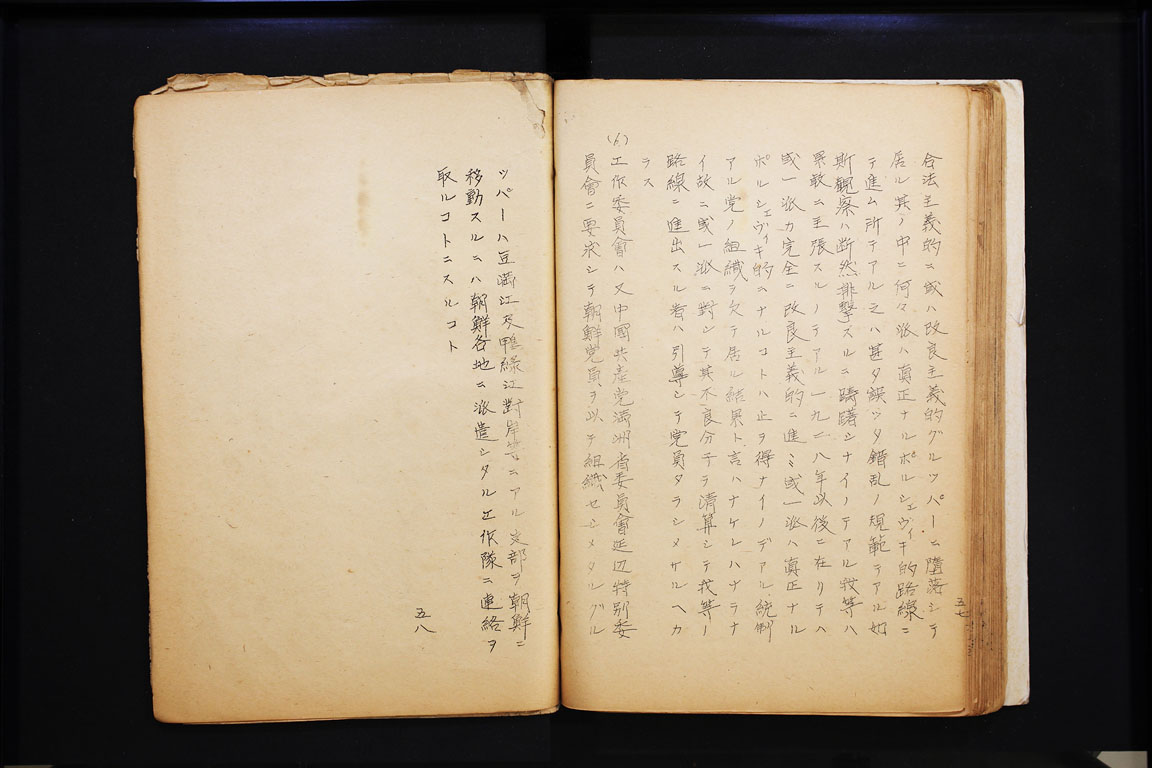 合法主義的ニ或ハ改良主義的グルツパーニ墮落シテ
居ル其ノ中ニ何々派ハ眞正ナルポルシェヴィキ的路線ニ
テ進ム所テアル之ハ甚タ誤ツタ錯乱ノ規範テアル如
斯觀察ハ断然排撃スルニ躊躇シナイノテアル我等ハ
果敢ニ主張スルノテアル一九二八年以後ニ在リテハ
或一派カ完全ニ改良主義的ニ進ミ或一派ハ眞正ナル
ポルシェヴィキ的ニナルコトハ止ヲ得ナイノデアル統制
アル党ノ組織ヲ欠テ居ル結果ト言ハナケレハナラナ
イ故ニ或一派ニ對シテ其不良分子ヲ清算シテ我等ノ
路線ニ進出スル者ハ引導シテ党員タラシメサルヘカ
ラス
(6)
工作委員會ハ又中國共產党満洲省委員會延辺特別委
員會ニ要求シテ朝鮮党員ヲ以テ組織セシメタルグル
五七
ツパーハ豆満江及鴨緑江對岸等ニアル支部ヲ朝鮮ニ
移動スルニハ朝鮮各地ニ派遣シタル工作隊ニ連絡ヲ
取ルコトニスルコト
五八